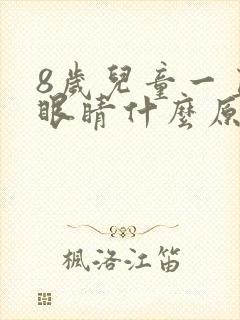 8歲兒童一
眼睛什麼原
楓洛江笛